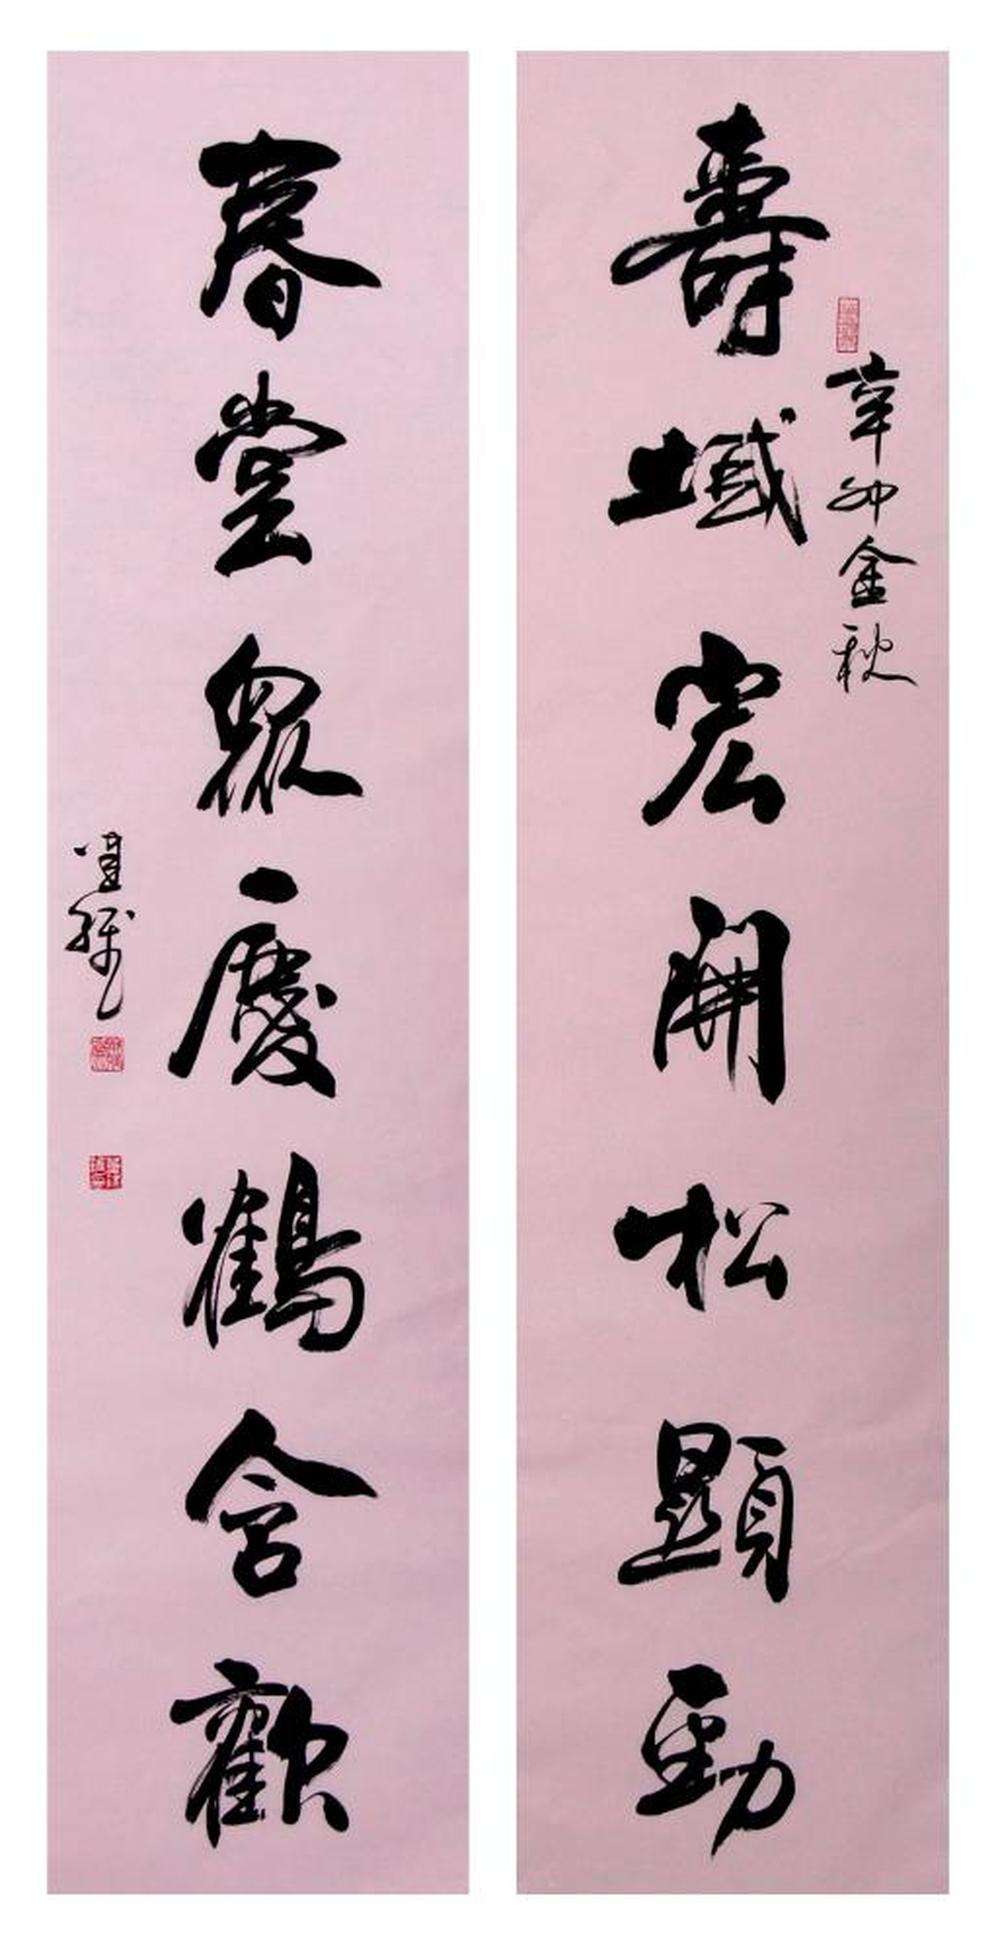 壽域宏開松顯勁
辛卯金秋
春堂眾慶鶴含歡